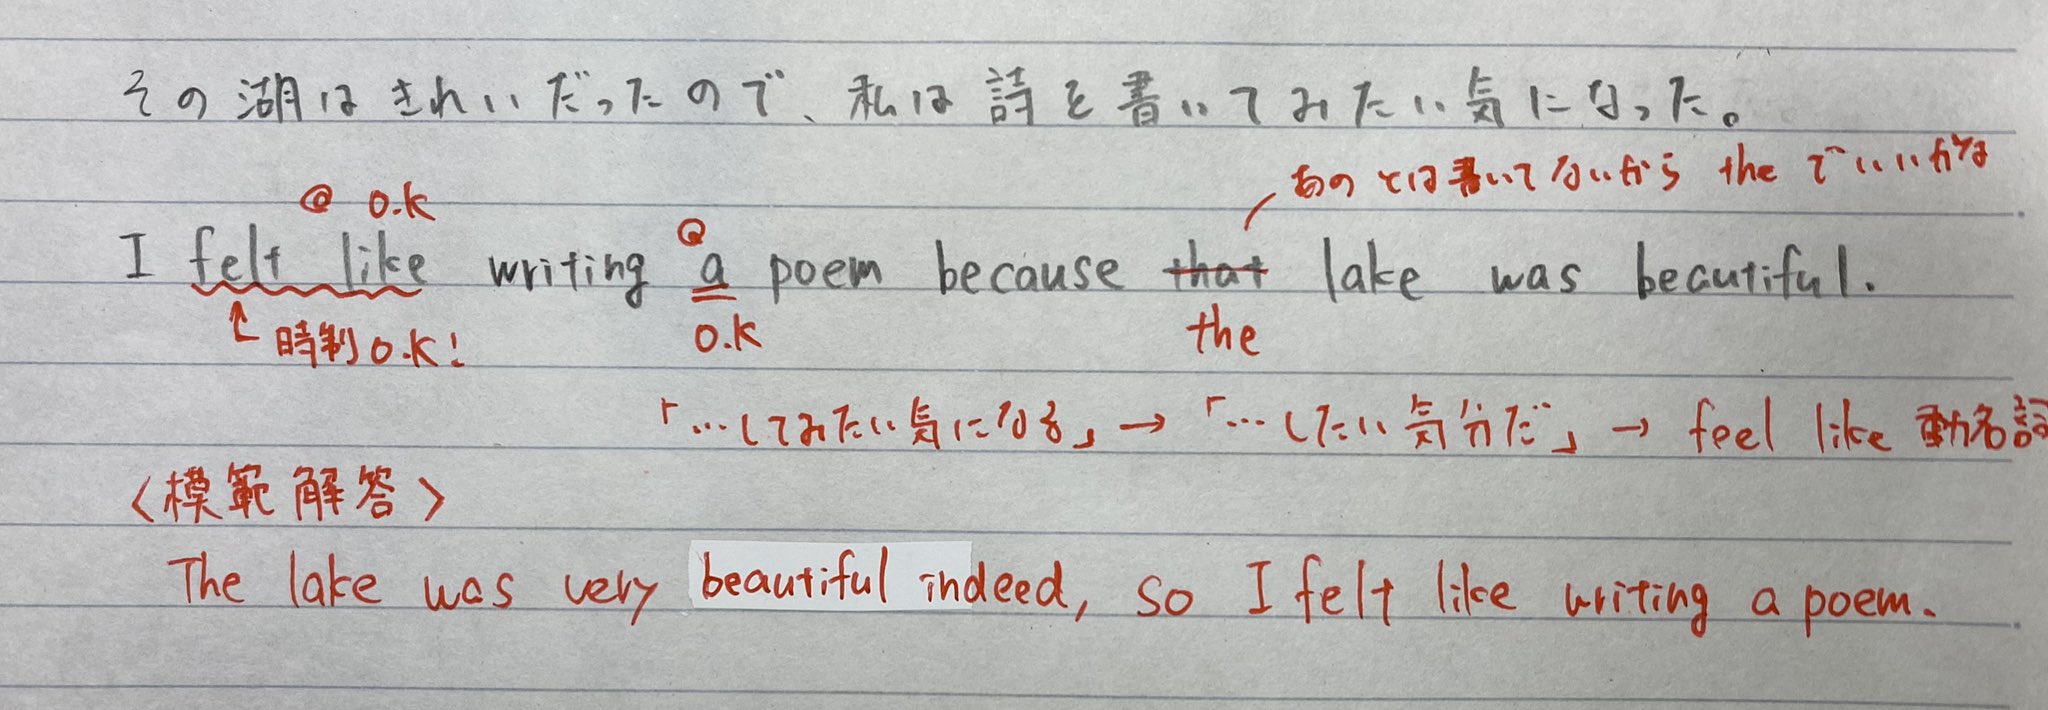 その湖はきれいだったので、私は詩を書いてみたい気になった。
あのとは書いてないから the でいいかな
@ O.K
@
I felt like writing a poem because that lake was beautiful.
時制O.K!
O.K
the
「…してみたい気になる」→「…したい気分だ」→ feel like 動名詞
〈模範解答〉
The lake was very beautiful indeed, so I felt like writing a poem.